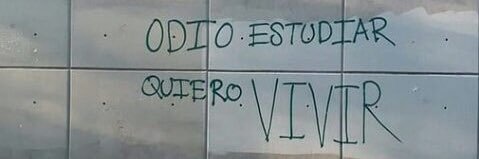 ODIO ESTUDIAR
QUIERO VIVIR